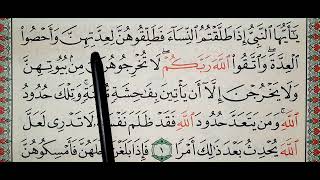 يَٰٓأَيُّهَا ٱلنَّبِىُّ إِذَا طَلَّقْتُمُ ٱلنِّسَآءَ فَطَلِّقُوهُنَّ لِعِدَّتِهِنَّ وَأَحْصُوا۟
ٱلْعِدَّةَ ۖ وَٱتَّقُوا۟ ٱللَّهَ رَبَّكُمْ ۖ لَا تُخْرِجُوهُنَّ مِنۢ بُيُوتِهِنَّ
وَلَا يَخْرُجْنَ إِلَّآ أَن يَأْتِينَ بِفَٰحِشَةٍ مُّبَيِّنَةٍ ۚ وَتِلْكَ حُدُودُ
ٱللَّهِ ۚ وَمَن يَتَعَدَّ حُدُودَ ٱللَّهِ فَقَدْ ظَلَمَ نَفْسَهُۥ ۚ لَا تَدْرِى لَعَلَّ
ٱللَّهَ يُحْدِثُ بَعْدَ ذَٰلِكَ أَمْرًا ١ فَإِذَا بَلَغْنَ أَجَلَهُنَّ فَأَمْسِكُوهُنَّ